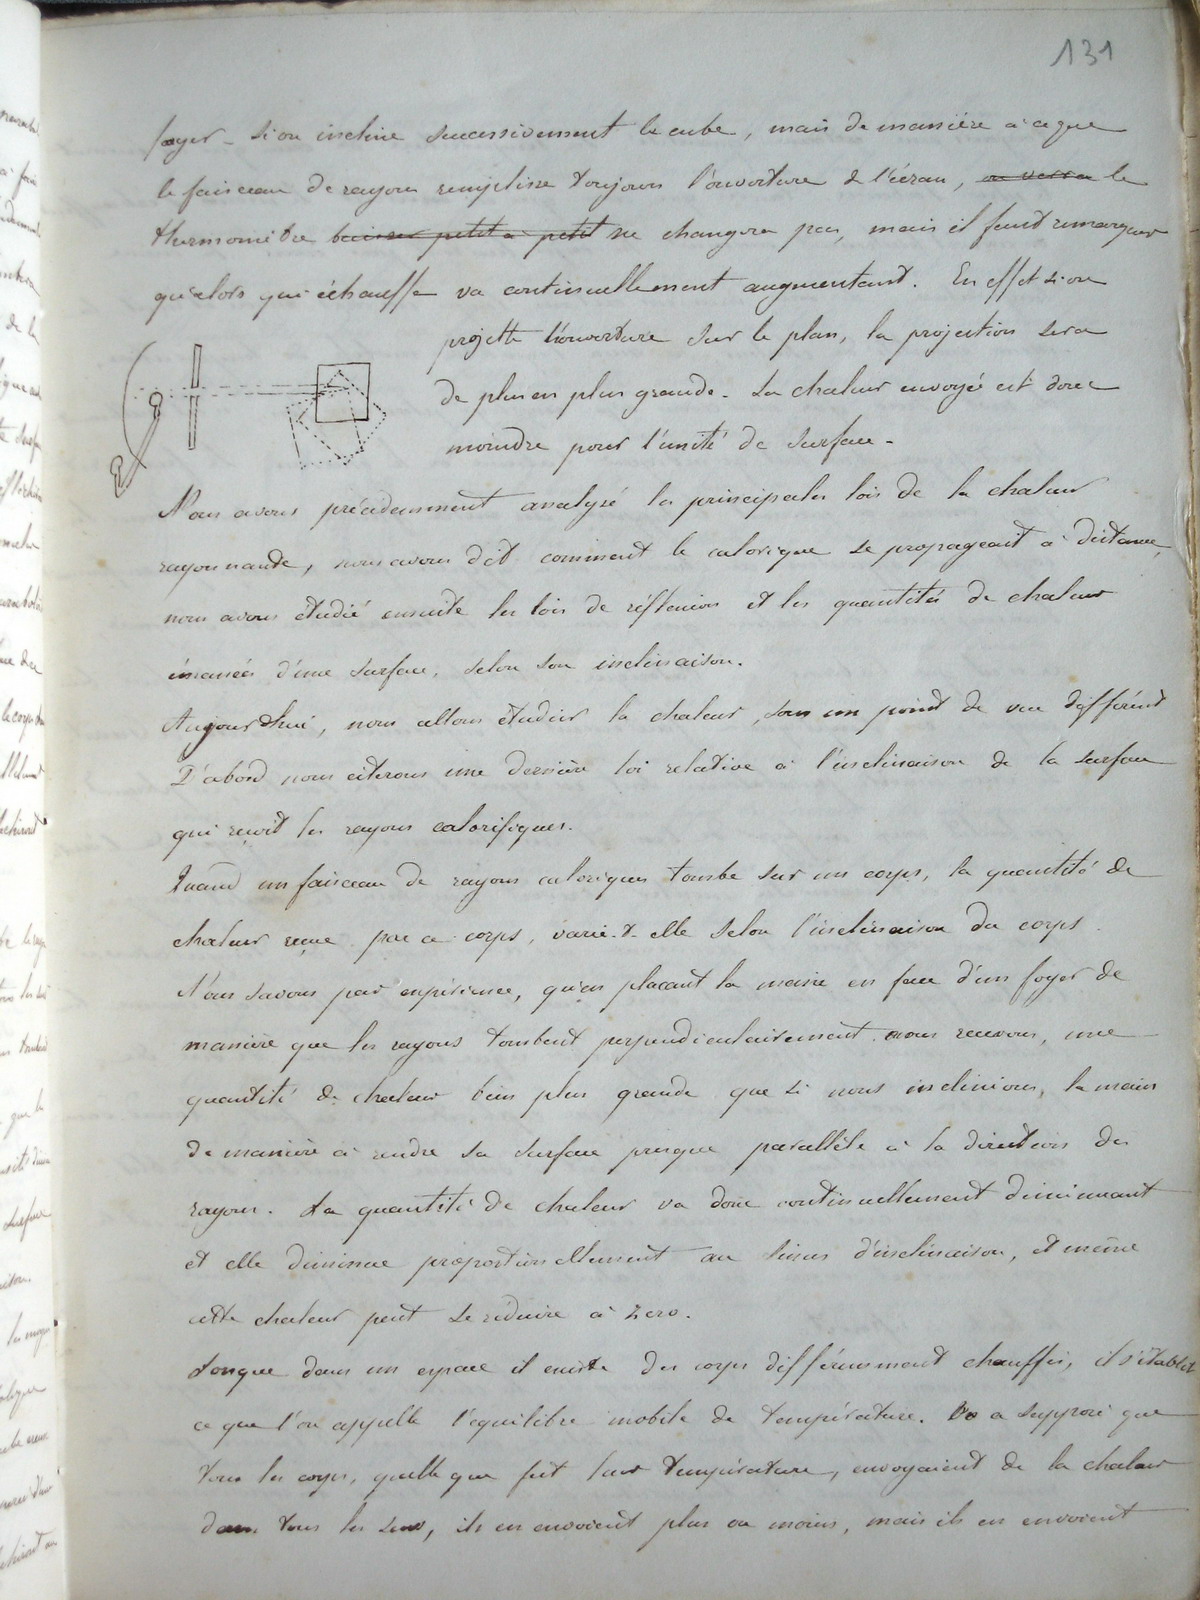 131
foyer - si on incline successivement le cube, mais de manière à ce que
le faisceau de rayon remplisse toujours l'ouverture de l'écran, on verra le
thermomètre baisser petit à petit ne changera pas, mais il faut remarquer
qu'alors qui échauffe va continuellement augmentant. En effet si on
projette l'ouverture sur le plan, la projection sera
de plus en plus grande. La chaleur envoyé est donc
moindre pour l'unité de surface.
Nous avons précédemment analysé les principales lois de la chaleur
rayonnante, nous avons dit comment le calorique se propageait à distance,
nous avons étudié ensuite les lois de réflexion et les quantités de chaleur
émanées d'une surface, selon son inclinaison.
Aujourd'hui, nous allons étudier la chaleur, sous un point de vue différent
D'abord nous citerons une dernière loi relative à l'inclinaison de la surface
qui reçoit les rayons calorifiques.
Quand un faisceau de rayons caloriques tombe sur un corps, la quantité de
chaleur reçue par ce corps, varie-t-elle selon l'inclinaison du corps.
Nous savons par expérience, qu'en plaçant la main en face d'un foyer de
manière que les rayons tombent perpendiculairement nous recevons, une
quantité de chaleur bien plus grande que si nous inclinions, la main
de manière à rendre sa surface presque parallèle à la direction des
rayons. La quantité de chaleur va donc continuellement diminuant
et elle diminue proportionellement au sinus d'inclinaison, et même
cette chaleur peut se réduire à zéro.
Lorsque dans un espace il existe des corps différemment chauffés, il s'établit
ce que l'on appelle l'équilibre mobile de température. On a supposé que
tous les corps, quelle que fut leur température, envoyaient de la chaleur
dans tous les sens, ils en envoient plus ou moins, mais ils en envoient